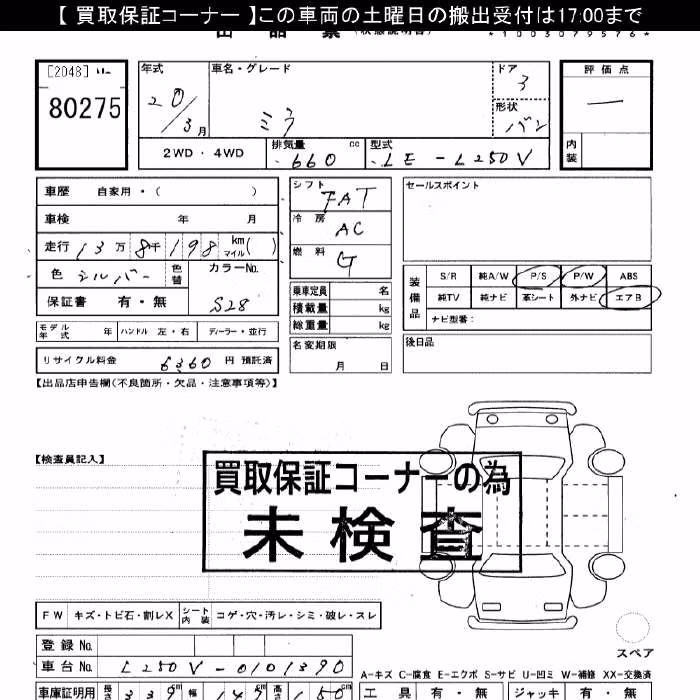 【 買取保証コーナー 】この車両の土曜日の搬出受付は17:00まで
出品票 (状態説明書) *1003079576*
[2048]
80275
年式
20/3月
車名・グレード
ミラ
ドア
3
形状
バン
評価点
—
内装
2WD ・ 4WD
排気量 660 cc
型式 LE-L250V
車歴 自家用・( )
車検 年 月
走行 13万8千198 km マイル( )
色 シルバー 色替
カラーNo. S28
保証書 有・無
モデル年式 年 ハンドル 左・右 ディーラー・並行
リサイクル料金 6360 円 預託済
シフト FAT
冷房 AC
燃料 G
乗車定員 名
積載量 kg
総重量 kg
名変期限
月 日
セールスポイント
装備品
S/R 純A/W P/S P/W ABS
純TV 純ナビ 革シート 外ナビ エアB
ナビ型番:
後日品
【出品店申告欄(不良箇所・欠品・注意事項等)】
【検査員記入】
買取保証コーナーの為
未検査
FW キズ・トビ石・割レX シート内装 コゲ・穴・汚レ・シミ・破レ・スレ
スペア
登録 No.
車台 No. L250V-0101390
A-キズ C-腐食 E-エクボ S-サビ U-凹ミ W-補修 XX-交換済
車庫証明用 長さ 339 cm 幅 147 cm 高さ 150 cm
工具 有・無 ジャッキ 有・無